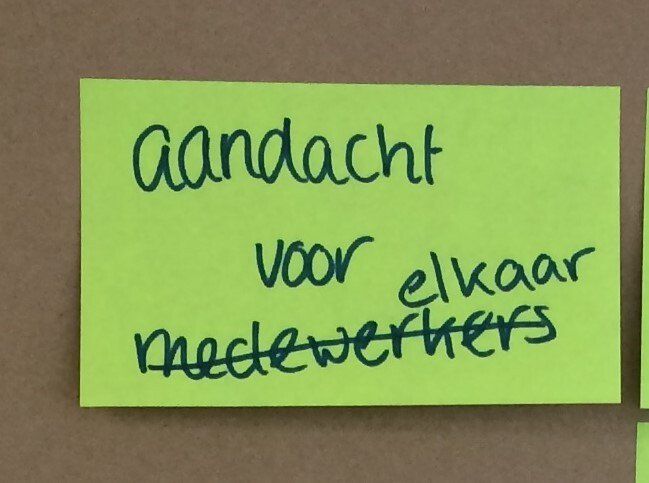 aandacht
voor elkaar
medewerkers